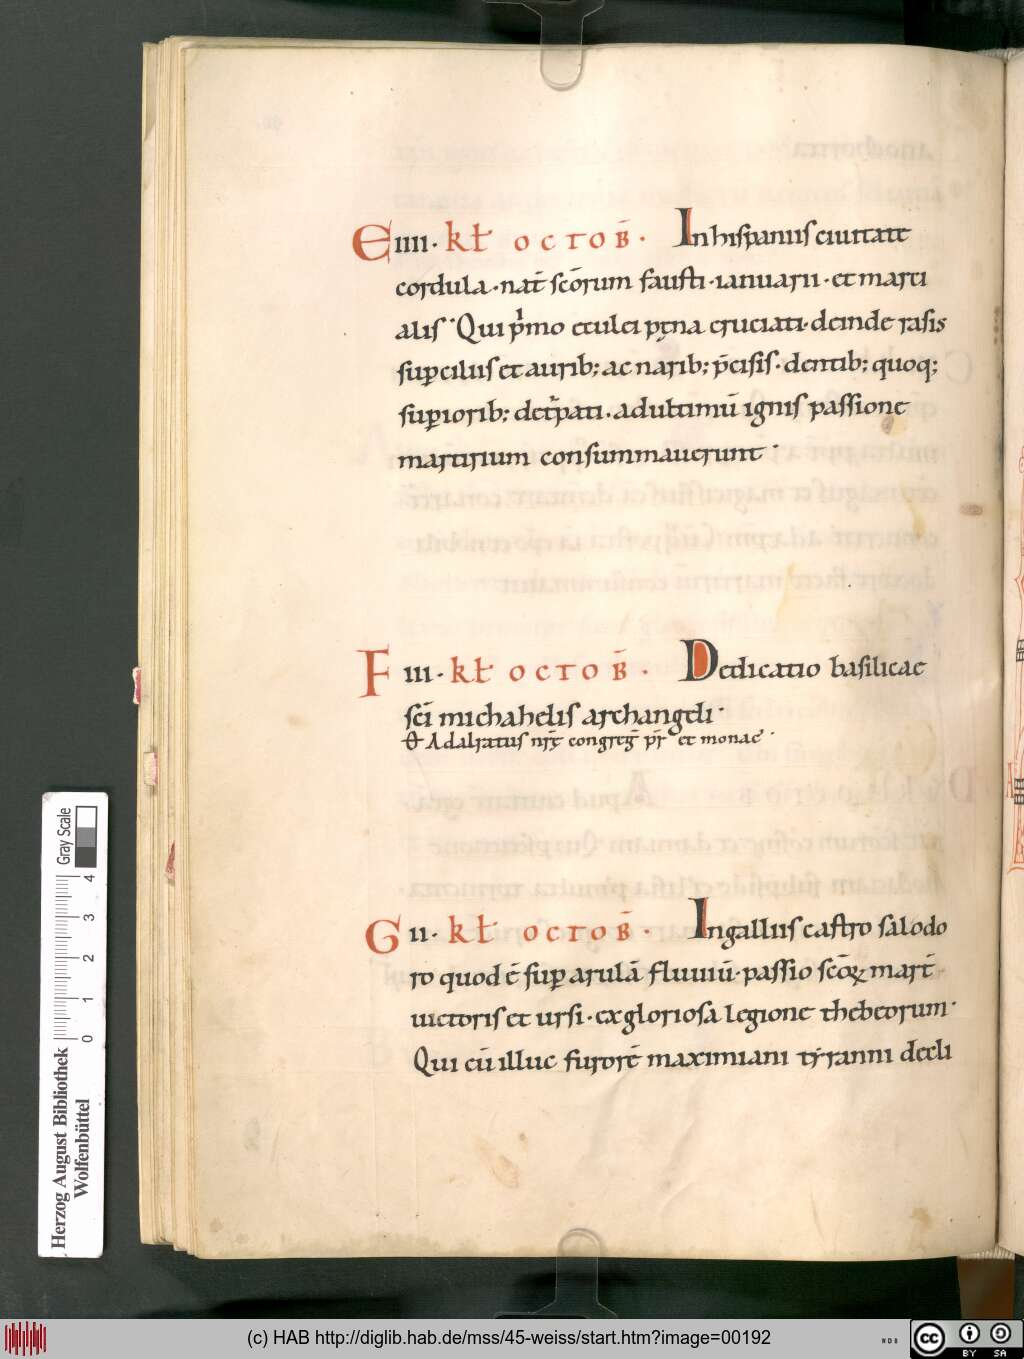 E IIII · kł OCTOB̄ · In hispaniis ciuitate
cordula · nat̄ sc̄orum fausti · ianuarii · et marti
alis · Qui p̍mo eculei pęna cruciati · deinde rasis
suꝑciliis et aurib; ac narib; p̄cisis · dentib; quoq;
suꝑiorib; det̍pati · ad ultimū ignis passione
martirium consummauerunt ·
F III · kł OCTOB̄ · Dedicatio basilicae
sc̄i michahelis archangeli ·
Adalratus nr̄ę congreḡ pr̄ et monac̄ ·
G II · kł OCTOB̄ · In galliis castro salodo
ro quod ē suꝑ arulā fluuiū · passio sc̄oꝝ mart̄
uictoris et ursi · ex gloriosa legione thebeorum ·
Qui cū illuc furorē maximiani tyranni decli
Gray Scale
0 1 2 3 4
Herzog August Bibliothek
Wolfenbüttel
(c) HAB http://diglib.hab.de/mss/45-weiss/start.htm?image=00192
WDB
cc BY SA